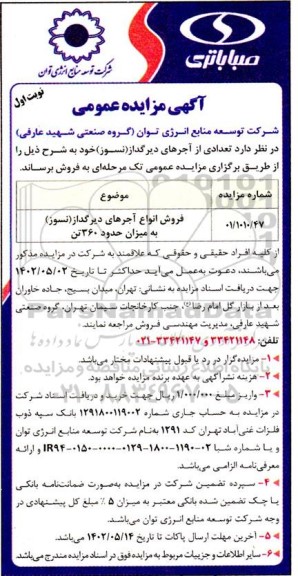 صبا باتری
شرکت توسعه منابع انرژی توان
نوبت اول
آگهی مزایده عمومی
شرکت توسعه منابع انرژی توان (گروه صنعتی شهید عارفی)
در نظر دارد تعدادی از آجرهای دیرگداز(نسوز)خود به شرح ذیل را
از طریق برگزاری مزایده عمومی تک مرحله‌ای به فروش برساند.
شماره مزایده موضوع
۰۱/۱۰۱۰/۴۷ فروش انواع آجرهای دیرگداز(نسوز)
به میزان حدود ۳۶۰تن
از کلیه افراد حقیقی و حقوقی که علاقمند به شرکت در مزایده مذکور
می‌باشند، دعوت به‌عمل می‌آید حداکثر تا تاریخ ۱۴۰۲/۰۵/۰۲
جهت دریافت اسناد مزایده به نشانی: تهران، میدان بسیج، جاده خاوران
بعد از پل، گل امام رضا، جنب کارخانجات سیمان تهران، گروه صنعتی
شهید عارفی، مدیریت مهندسی فروش مراجعه نمایند.
تلفن: ۳۳۴۲۱۱۴۸ و ۳۳۴۲۱۱۴۷-۰۲۱
۱- مزایده‌گزار در رد یا قبول پیشنهادات مختار می‌باشد.
۲- هزینه نشر آگهی به عهده برنده مزایده خواهد بود.
۳- واریز مبلغ ۱/۰۰۰/۰۰۰ ریال جهت خرید و دریافت اسناد شرکت
در مزایده به حساب جاری شماره ۱۲۹۱۸۰۰۱۱۹۰۰۲ بانک سپه ذوب
فلزات غنی‌آباد تهران کد ۱۲۹۱ به‌نام شرکت توسعه منابع انرژی توان
و یا شماره شبا IR۹۴-۰۱۵۰-۰۰۰۰-۰۱۲۹-۱۸۰۰-۱۱۹۰-۰۲ و ارائه
معرفی‌نامه الزامی می‌باشد.
۴- سپرده تضمین شرکت در مزایده به‌صورت ضمانت‌نامه بانکی
یا چک تضمین شده بانکی معتبر به میزان ۵ ٪ مبلغ کل پیشنهادی در
وجه شرکت توسعه منابع انرژی توان می‌باشد.
۵- آخرین مهلت ارسال پاکات تا تاریخ ۱۴۰۲/۰۵/۱۴ می‌باشد.
۶- سایر اطلاعات و جزییات مربوط به مزایده فوق در اسناد مزایده مندرج می‌باشد.